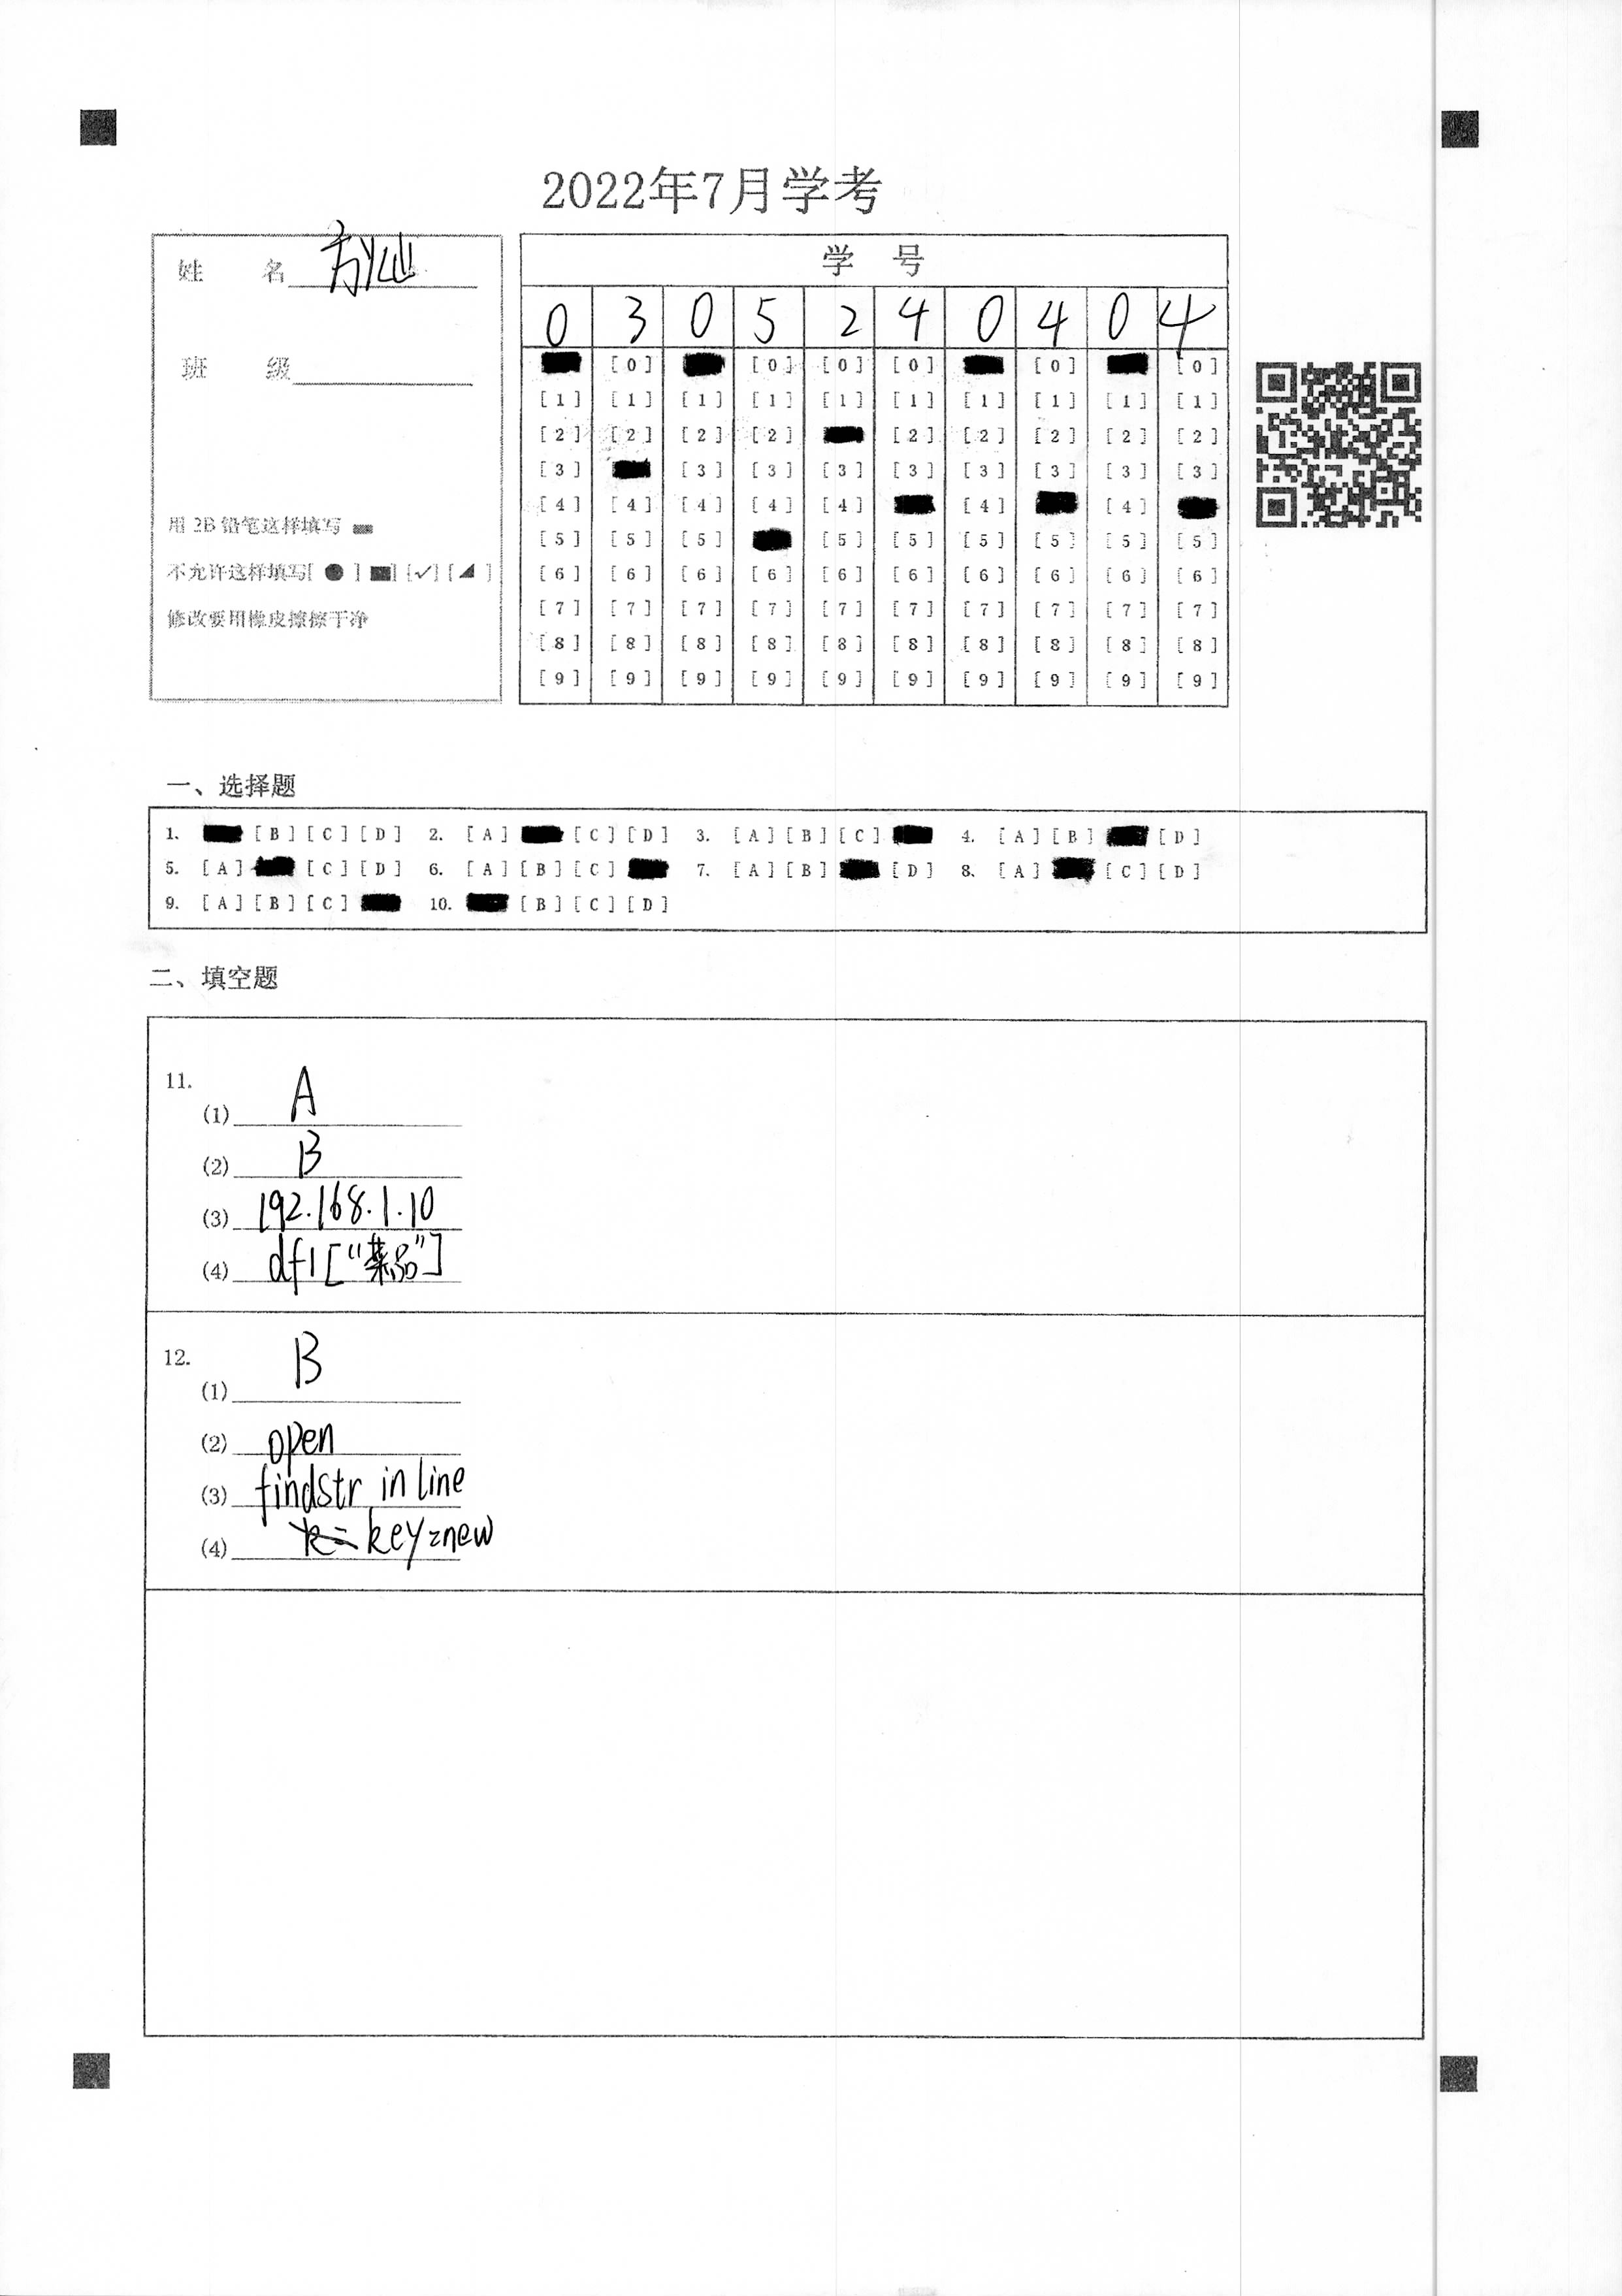 2022年7月学考
姓 名 方灿
班 级
用 2B 铅笔这样填写
不允许这样填写[ ● ] [■] [✓] [◢ ]
修改要用橡皮擦擦干净
学 号
0 3 0 5 2 4 0 4 0 4
[0] [0] [0] [0] [0] [0]
[1] [1] [1] [1] [1] [1] [1] [1] [1] [1]
[2] [2] [2] [2] [2] [2] [2] [2] [2]
[3] [3] [3] [3] [3] [3] [3] [3] [3]
[4] [4] [4] [4] [4] [4] [4]
[5] [5] [5] [5] [5] [5] [5] [5] [5]
[6] [6] [6] [6] [6] [6] [6] [6] [6] [6]
[7] [7] [7] [7] [7] [7] [7] [7] [7] [7]
[8] [8] [8] [8] [8] [8] [8] [8] [8] [8]
[9] [9] [9] [9] [9] [9] [9] [9] [9] [9]
一、选择题
1. [B] [C] [D] 2. [A] [C] [D] 3. [A] [B] [C] 4. [A] [B] [D]
5. [A] [C] [D] 6. [A] [B] [C] 7. [A] [B] [D] 8. [A] [C] [D]
9. [A] [B] [C] 10. [B] [C] [D]
二、填空题
11.
(1) A
(2) B
(3) 192.168.1.10
(4) df1["菜品"]
12.
(1) B
(2) open
(3) findstr in line
(4) k= key=new